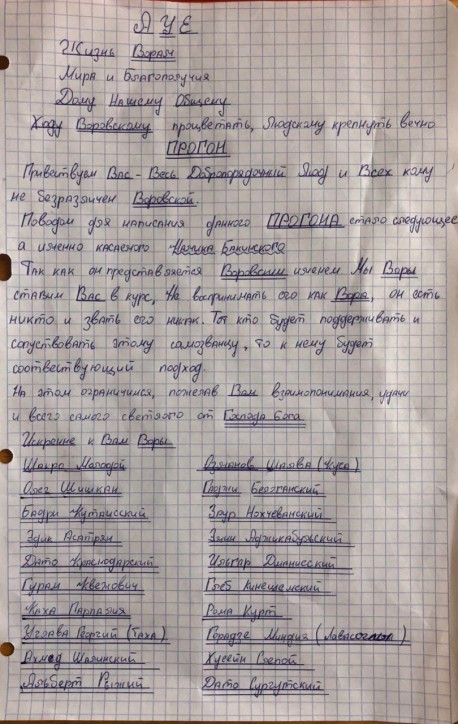 А У Е
Жизнь Ворам
Мира и Благополучия
Дому Нашему Общему
Ходу Воровскому процветать, Людскому крепнуть вечно
ПРОГОН
Приветствуем Вас - Весь Добропорядочный Люд и Всех кому
не безразличен Воровской.
Поводом для написания данного ПРОГОНА стало следующее
а именно касаемого Бакинского
Так как он представляется Воровским именем Мы Воры
ставим Вас в курс, Не воспринимать его как Вора, он есть
никто и звать его никак. Тот кто будет поддерживать и
сопуствовать этому самозванцу, то к нему будет
соотвествующий подход.
На этом ограничимся, пожелав Вам взаимопонимания, удачи
и всего самого светлого от Господа Бога.
Искренне к Вам Воры
Шакро Молодой
Озманов Шалява (Куса)
Олег Шишкан
Гаджи Белоканский
Бадри Кутаисский
Заур Нахчеванский
Эдик Асатрян
Элин Аджикабульский
Дато Краснодарский
Ильгар Дманисский
Гурам Квежович
Глеб Кинешемский
Каха Парпалия
Рома Курт
Углава Георгий (Таха)
Горадзе Миндия (Лавасоглы)
Ахмед Шалинский
Хусейн Слепой
Альберт Рыжий
Дато Сургутский